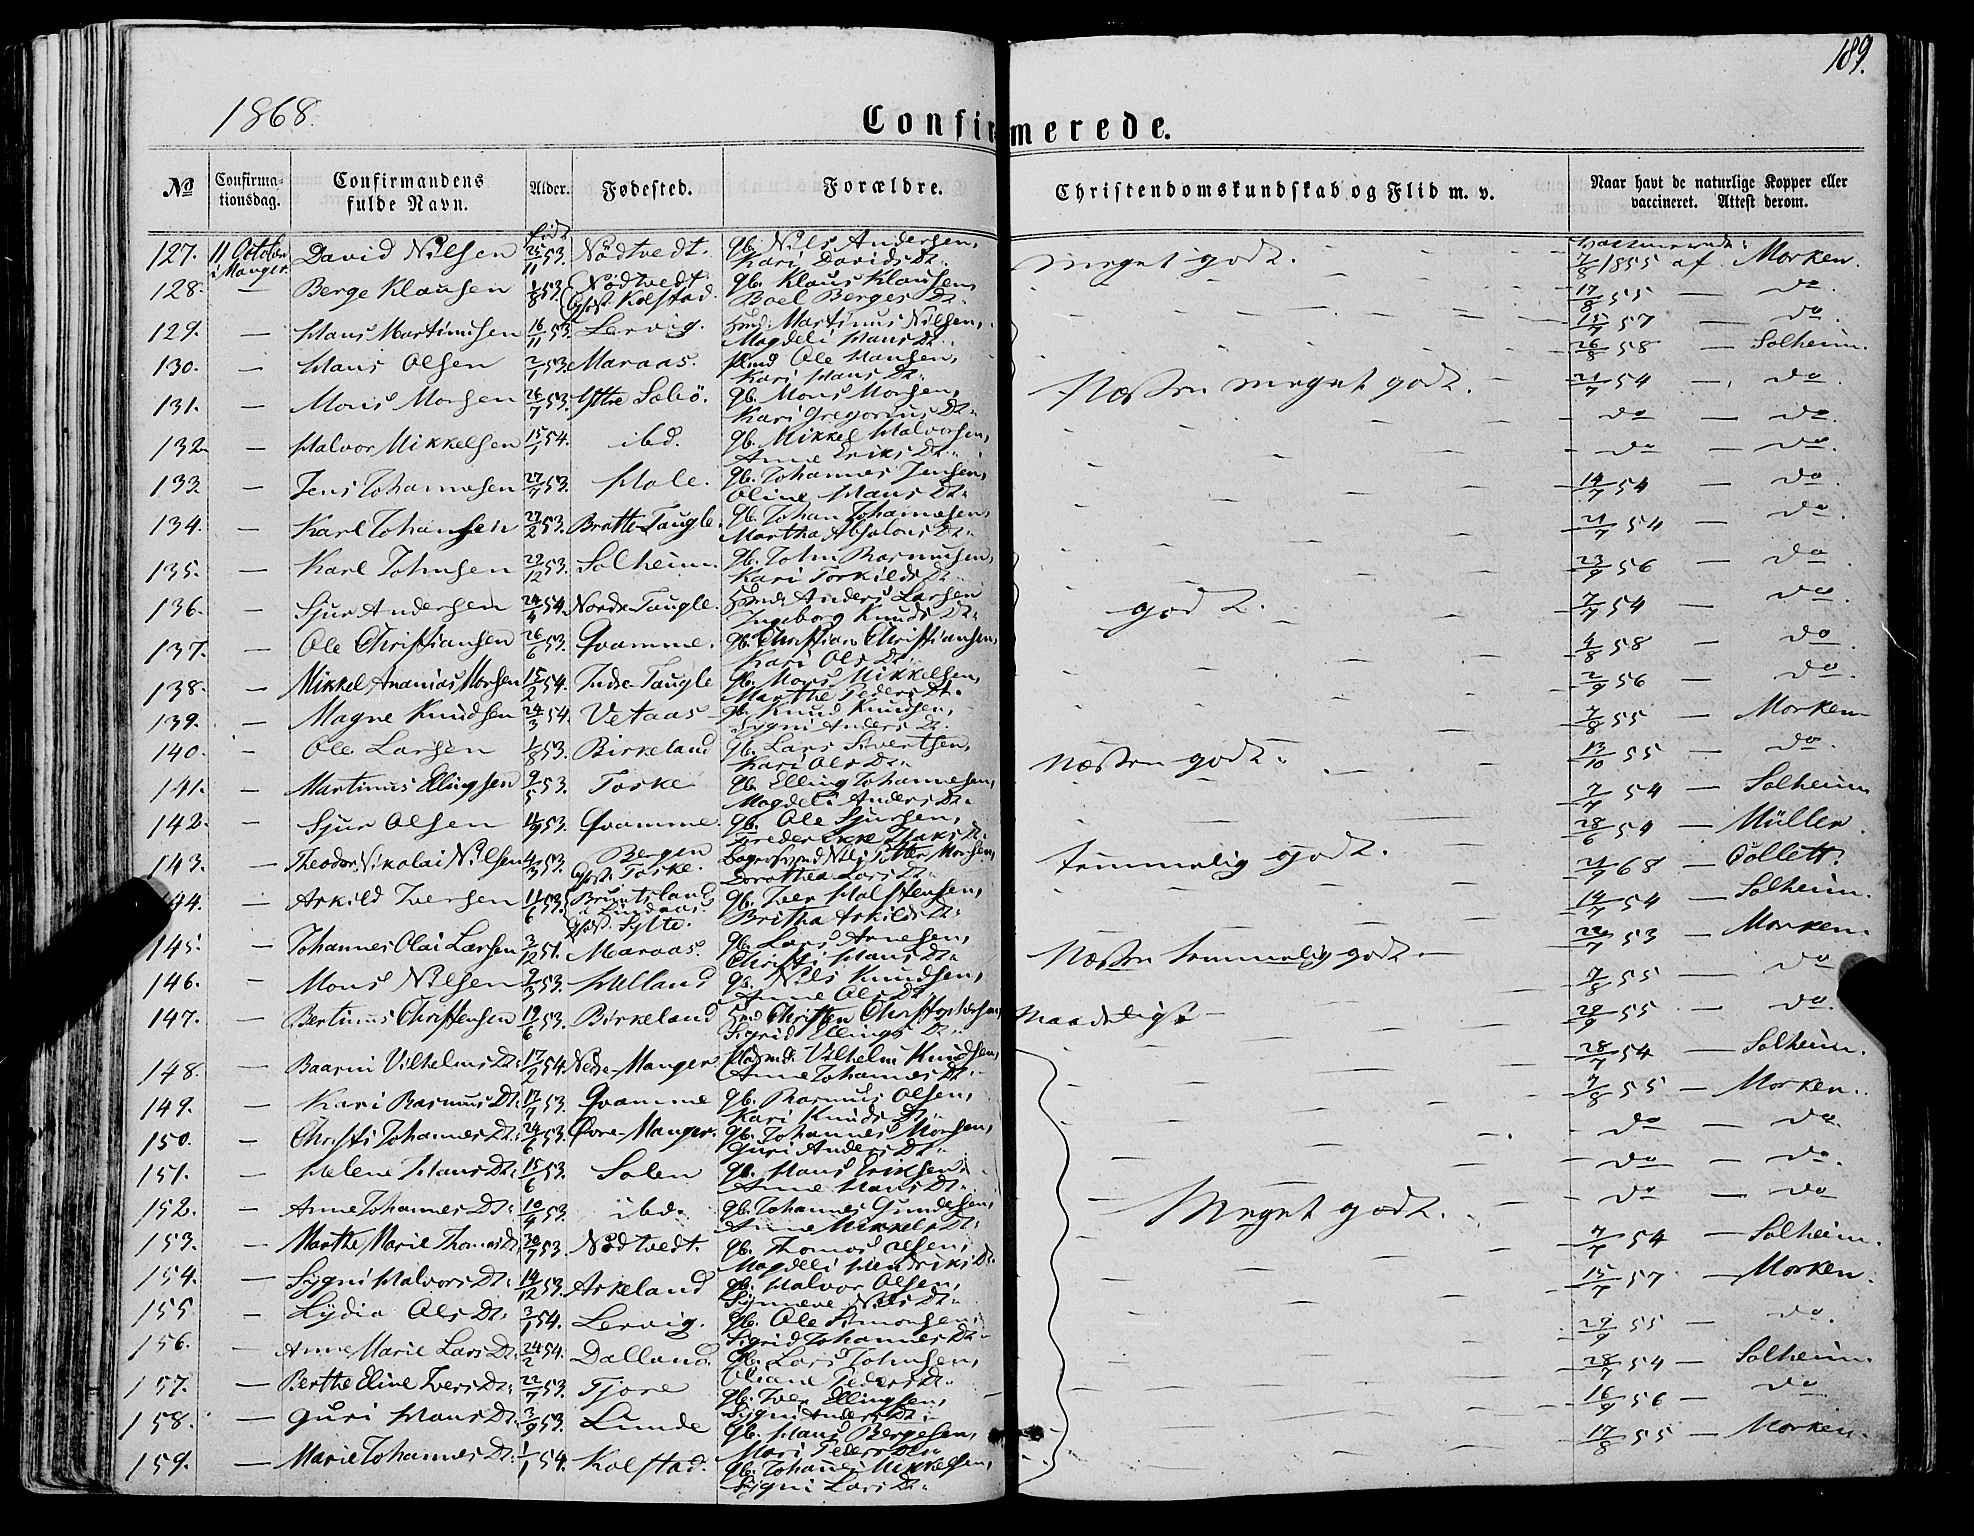 189.
1868.
Confirmerede.
No Confirmationsdag. Confirmandens fulde Navn. Alder. Fødested. Forældre. Christendomskundskab og Flid m. v. Naar havt de naturlige Kopper eller vaccineret. Attest derom.
født
127. 11 October i Manger David Nilsen 25/11 53. Nödtvedt. Gb. Nils Andersen, Kari Davids Dt. Meget godt. vaccinerede: 7/8 1855 af Morken.
128. — Berge Klausen 1/8 53. Nödtvedt. Opst. Kolstad. Gb. Klaus Klausen, Boel Berges Dt. 17/8 55 — do.
129. — Hans Martinusen 16/11 53. Lervig. Hmd. Martinus Nilsen, Magdeli Hans Dt. 15/7 57 — do.
130. — Hans Olsen 2/1 53. Maraas. Ole Hansen, Kari Hans Dt. 26/8 58 — Solheim.
131. — Mons Monsen 26/7 53. Yttre Sæbö. Gb. Mons Monsen, Kari Gregorius Dt. Næsten meget godt. 21/7 54 — do.
132. — Halvor Mikkelsen 15/1 54. ibd. Gb. Mikkel Halvorsen, Anne Eriks Dt. do — do.
133. — Jens Johannesen 27/7 53. Hole. Gb. Johannes Jensen, Oline Hans Dt. do — do
134. — Karl Johansen 27/2 53. Bratte-Taugle. Gb. Johan Johannesen, Martha Absalons Dt. 14/7 54 — do
135. — Karl Johnsen 22/12 53. Solheim. Gb. John Rasmusen, Kari Torkilds Dt. 21/7 54 — do.
136. — Sjur Andersen 24/4 54. Nordre Taugle. Anders Larsen Ingeborg Knuds Dt. godt. 23/9 56 — do
137. — Ole Christiansen 26/6 53. Qvamme. Gb. Christian Christiansen, Kari Ols Dt. 7/7 54 — do.
138. — Mikkel Ananias Monsen 15/2 54. Indre Taugle Gb. Mons Mikkelsen, Marthe Peders Dt. 4/8 58 — do
139. — Magne Knudsen 24/3 54. Vetaas Gb. Knud Knudsen, Sygni Anders Dt. 2/9 56 — do.
140. — Ole Larsen 1/8 53. Birkeland Gb. Lars Sivertsen, Kari Ols Dt. Næsten godt. 7/8 55 — Morken
141. — Martinus Ellingsen 9/5 53. Toske Gb. Elling Johannesen, Magdeli Anders Dt. 13/10 55 — do.
142. — Sjur Olsen 11/9 53. Qvamme. Gb. Ole Sjursen, 7/7 54 — Solheim
143. — Theodor Nikolai Nilsen 4/3 53. Bergen Opst. Toske. Nils Petter Monsen, Dorothea Lars Dt. temmelig godt. 28/6 54 — Müller.
144. — Arkild Iversen 11/6 53. i Lindaas. Opst. Sylte. Gb. Iver Halstensen, Britha Arkilds Dt. 21/9 68 — Collett.
145. — Johannes Olai Larsen 3/12 51. Maraas. Gb. Lars Arnesen, Christi Hans Dt. Næsten temmelig godt — 14/7 54 — Solheim.
146. — Mons Nilsen 9/3 53. Helland Gb. Nils Knudsen, Anne Ols Dt. 53 — Morken.
147. — Bertinus Christensen 19/6 53. Birkeland Christen Christophersen, Sigrid Ellings Dt. Maadeligt — 7/8 55 — do
148. — Baarni Vilhelms Dt. 17/2 54. Nedre-Manger Vilhelm Knudsen, Anne Johannes Dt. 29/9 55 — do
149. — Kari Rasmus Dt. 17/7 53. Qvamme Gb. Rasmus Olsen, Kari Knuds Dt. 28/7 54 — Solheim.
150. — Christi Johannes Dt. 24/6 53. Övre-Manger. Gb. Johannes Monsen, Guri Anders Dt. 7/8 55 — Morken.
151. — Helene Hans Dt. 15/6 53. Solem Gb. Hans Eriksen, Anne Hans Dt. do — do
152. — Anne Johannes Dt. 10/4 53. ibd. Gb. Johannes Gundersen, Anne Mikkels Dt. Meget godt. do — do.
153. — Marthe Marie Thomas Dt. 30/7 53. Nödtvedt. Gb. Thomas Olsen, Magdeli Hendriks Dt. do — do
154. — Sygni Halvors Dt. 14/12 53. Askeland Gb. Halvor Olsen, Synneve Nils Dt. 7/7 54 — Solheim.
155 — Lydia Ols Dt. 3/1 54. Lervig. Gb. Ole Simonsen, Sigrid Johannes Dt. 15/7 57 — Morken.
156. — Anne Marie Lars Dt. 24/2 54. Dalland. Gb. Lars Johnsen, Oliane Peders Dt. 29/9 55 — do.
157. — Berthe Eline Ivers Dt. 22/7 53. Tjore Gb. Iver Ellingsen, Sygni Anders Dt. 28/7 54 — Solheim.
158. — Guri Hans Dt. 3/9 53. Lunde Gb. Hans Bergesen, Mari Peders Dt. 16/9 56 — do
159. — Marie Johannes Dt. 1/1 54. Kolstad. Gb. Johannes Mikkelsen, Sygni Lars Dt. 17/8 55 — Morken.